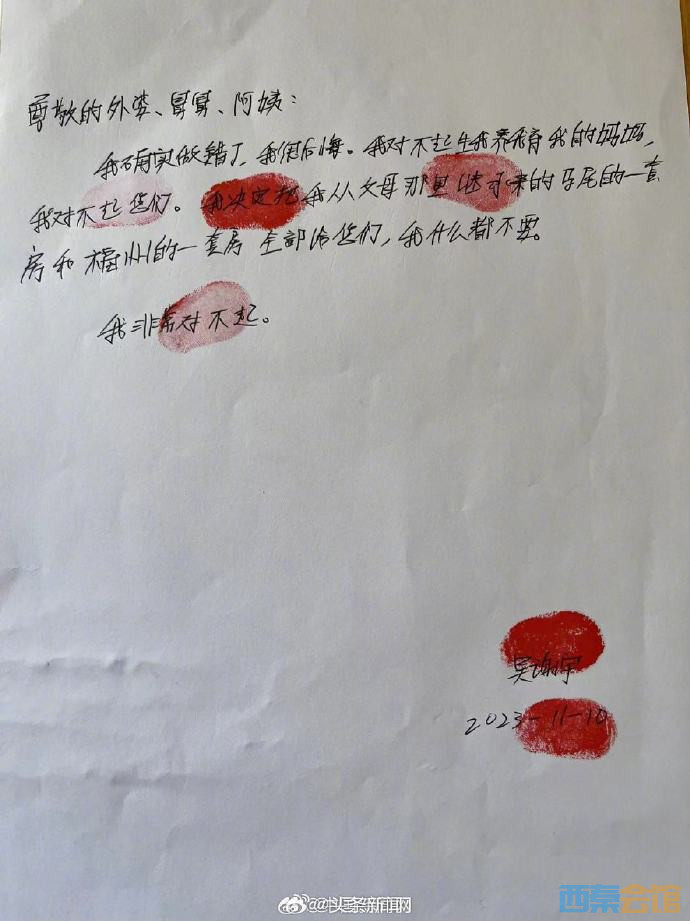 尊敬的外婆、舅舅、阿姨：
我确实做错了，我很后悔。我对不起生我养我育我的妈妈，
我对不起您们。我决定把我从父母那里继承来的马尾的一套
房和福州的一套房全部给您们，我什么都不要。
我非常对不起。
吴谢宇
2023-11-10
@头条新闻网
西秦会馆